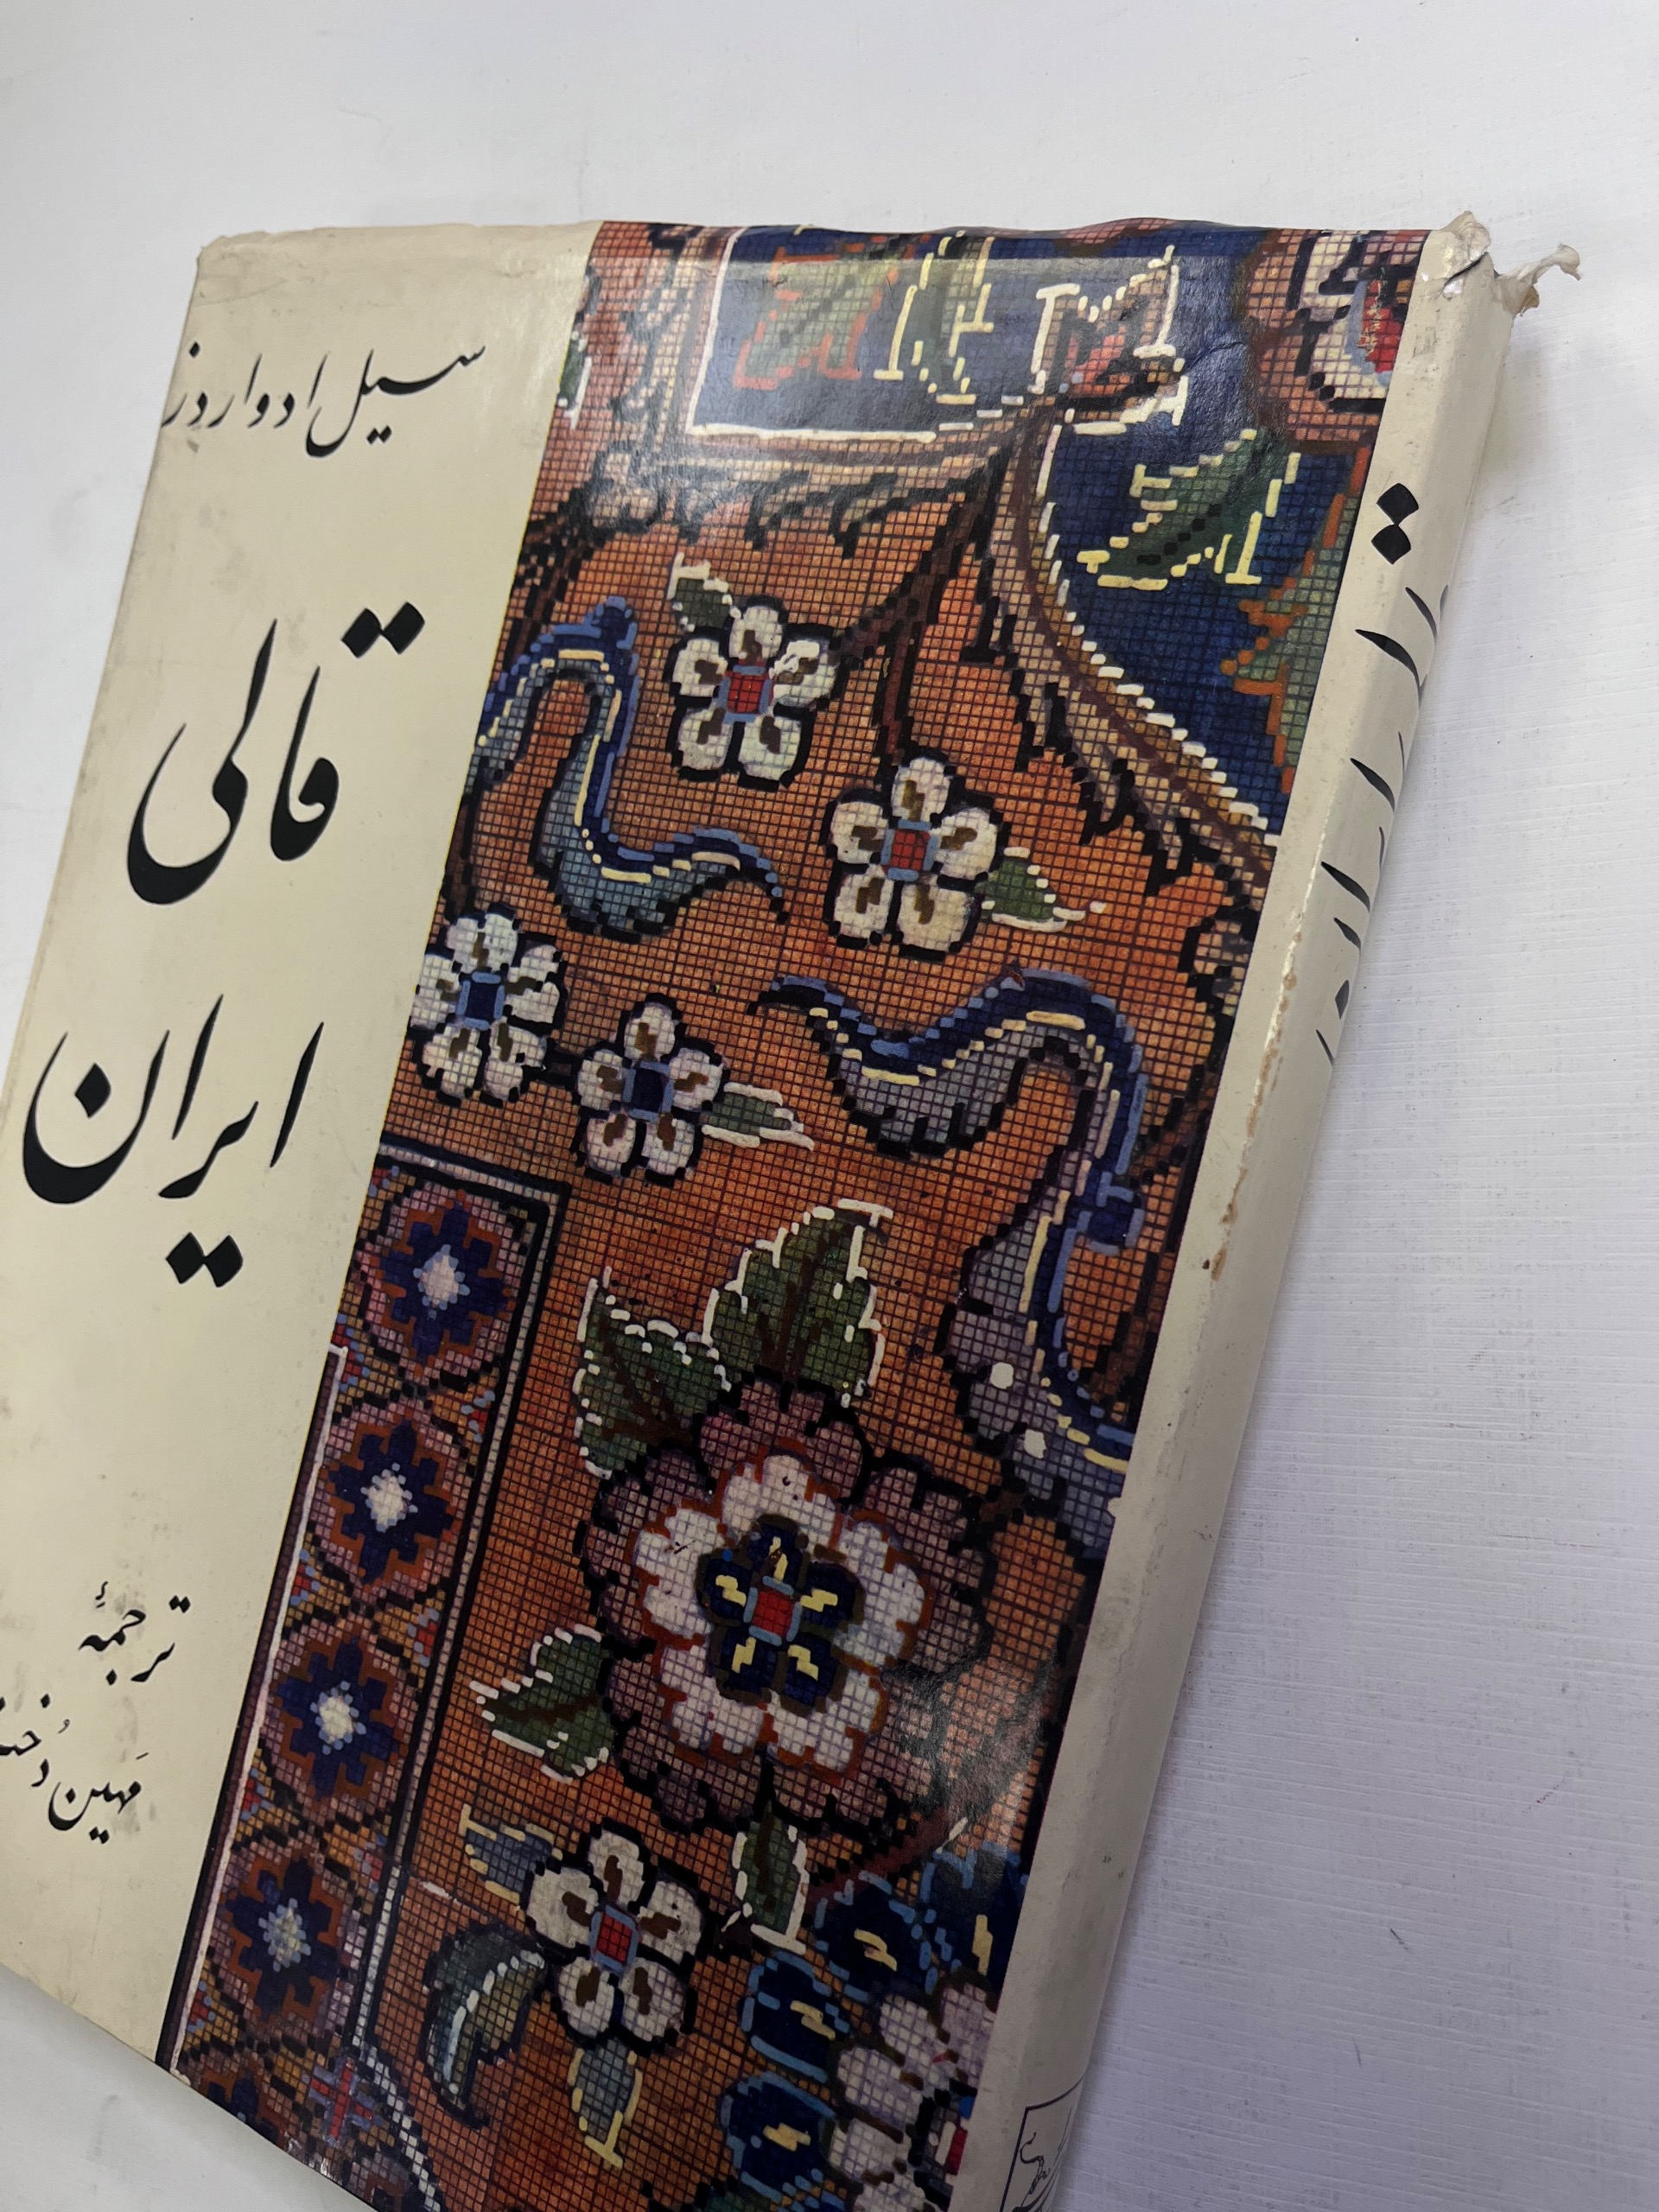 سیسیل ادواردز
قالی
ایران
ترجمهٔ
مَهین
قالی ایران